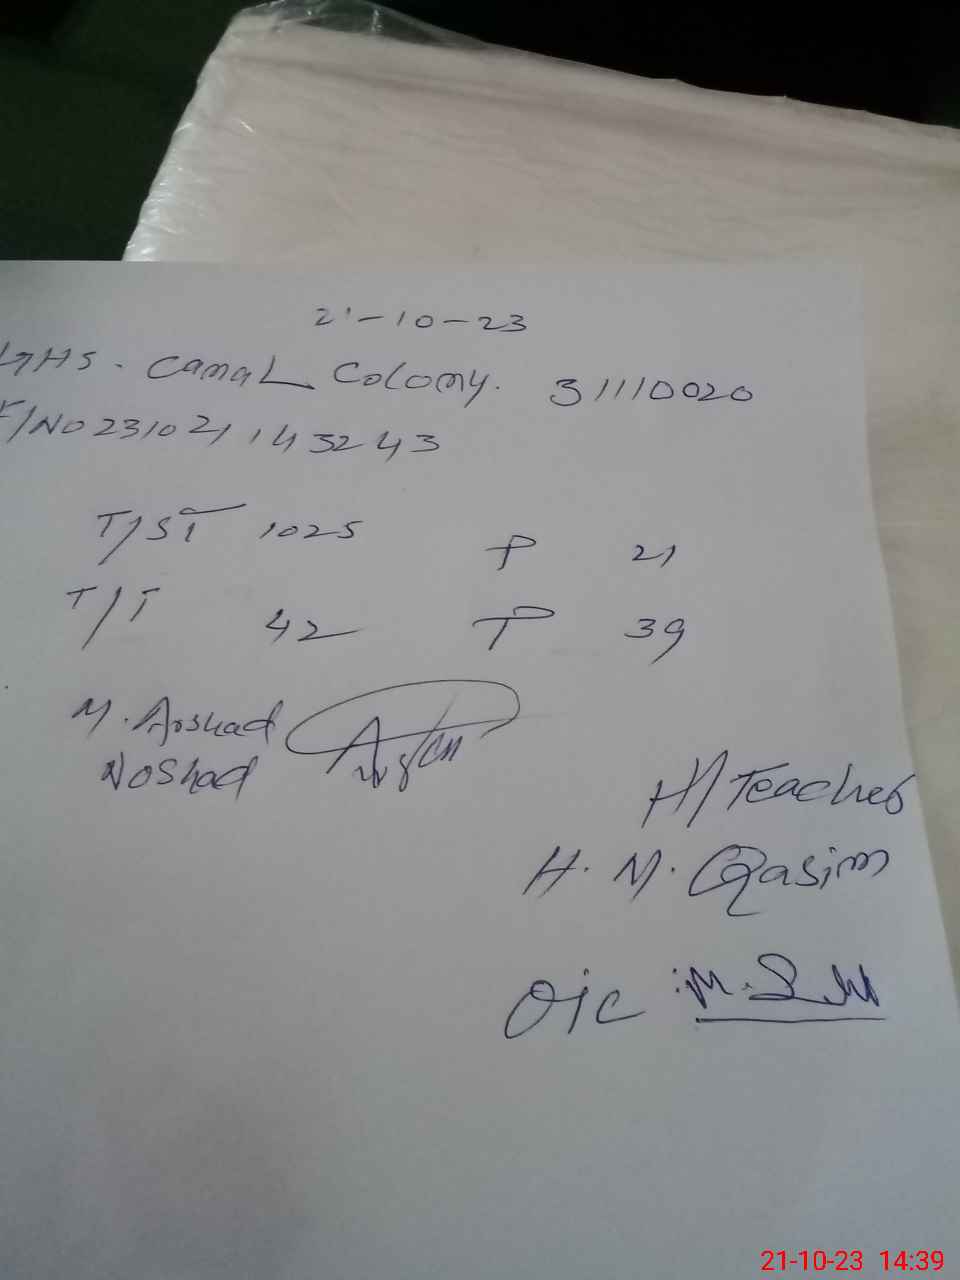 21-10-23
GHS. Canal Colony. 31110020
F/NO 231021143243
T/ST 1025 P 21
T/T 42 P 39
M. Arshad
Noshad
H/Teacher
H. M. Qasim
OIC
21-10-23 14:39